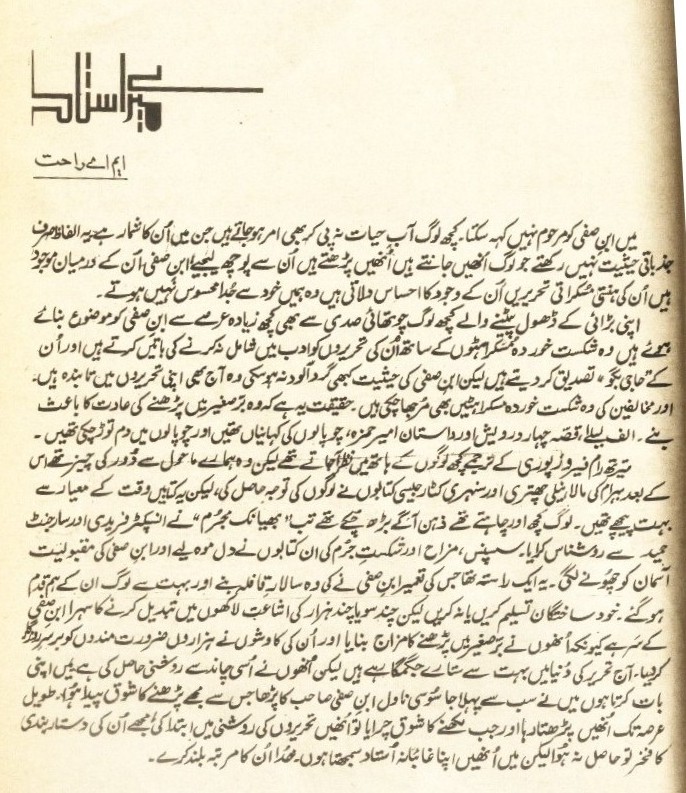 میرا استاد
ایم اے راحت
میں ابنِ صفی کو مرحوم نہیں کہہ سکتا۔ کچھ لوگ آبِ حیات نہ پی کر بھی امر ہو جاتے ہیں جن میں اُن کا شمار ہے۔ یہ الفاظ صرف
جذباتی حیثیت نہیں رکھتے جو لوگ انھیں جانتے ہیں اُنھیں پڑھتے ہیں اُن سے پوچھ لیجیے! ابنِ صفی اُن کے درمیان موجود
ہیں اُن کی ہنستی مسکراتی تحریریں اُن کے وجود کا احساس دلاتی ہیں وہ ہمیں خود سے جُدا محسوس نہیں ہوتے۔
اپنی بڑائی کے ڈھول پیٹنے والے کچھ لوگ چوتھائی صدی سے بھی کچھ زیادہ عرصے سے ابنِ صفی کو موضوع بنائے
ہوئے ہیں وہ شکست خوردہ مسکراہٹوں کے ساتھ اُن کی تحریروں کو ادب میں شامل نہ کرنے کی باتیں کرتے ہیں اور اُن
کے "حاجی بگو" تصدیق کر دیتے ہیں لیکن ابنِ صفی کی حیثیت کبھی گرد آلود نہ ہو سکی وہ آج بھی اپنی تحریروں میں تابندہ ہیں۔
اور مخالفین کی وہ شکست خوردہ مسکراہٹیں بھی مُرجھا چکی ہیں۔ حقیقت یہ ہے کہ وہ برِصغیر میں پڑھنے کی عادت کا باعث
بنے۔ الف لیلےٰ، قصّہ چہار درویش اور داستانِ امیر حمزہ، چوپالوں کی کہانیاں تھیں اور چوپالوں میں دم توڑ چکی تھیں۔
تیرتھ رام فیروزپوری کے ترجمے کچھ لوگوں کے ہاتھ میں نظر آجاتے تھے لیکن وہ ہمارے ماحول سے دُور کی چیز تھے اس
کے بعد بہرام کی مالا، نیلی چھتری اور سنہری کٹار جیسی کتابوں نے لوگوں کی توجہ حاصل کی، لیکن یہ کتابیں وقت کے معیار سے
بہت پیچھے تھیں۔ لوگ کچھ اور چاہتے تھے ذہن آگے بڑھ چکے تھے تب "بھیانک مجرم" نے انسپکٹر فریدی اور سارجنٹ
حمید سے روشناس کرایا۔ سسپنس، مزاح اور شکستِ جُرم کی ان کتابوں نے دل موہ لیے اور ابنِ صفی کی مقبولیت
آسمان کو چھونے لگی۔ یہ ایک راستہ تھا جس کی تعمیر ابنِ صفی نے کی وہ سالارِ قافلہ بنے اور بہت سے لوگ ان کے ہم قدم
ہو گئے۔ خود ساختگان تسلیم کریں یا نہ کریں لیکن چند سو یا چند ہزار کی اشاعت لاکھوں میں تبدیل کرنے کا سہرا ابنِ صفی
کے سر ہے کیونکہ اُنھوں نے برِصغیر میں پڑھنے کا مزاج بنایا اور اُن کی کاوشوں نے ہزاروں ضرورت مندوں کو برسرِ روزگار
کر دیا۔ آج تحریر کی دُنیا میں بہت سے ستارے جگمگا رہے ہیں لیکن اُنھوں نے اُسی چاند سے روشنی حاصل کی ہے۔ میں اپنی
بات کرتا ہوں میں نے سب سے پہلا جاسُوسی ناول ابنِ صفی صاحب کا پڑھا جس سے مجھے پڑھنے کا شوق پیدا ہوا۔ طویل
عرصہ تک اُنھیں پڑھتا رہا اور جب لکھنے کا شوق چرایا تو اُنھیں تحریروں کی روشنی میں ابتدا کی مجھے اُن کی دستار بندی
کا فخر تو حاصل نہ ہُوا لیکن میں اُنھیں اپنا غائبانہ اُستاد سمجھتا ہوں۔ خُدا اُن کا مرتبہ بلند کرے۔